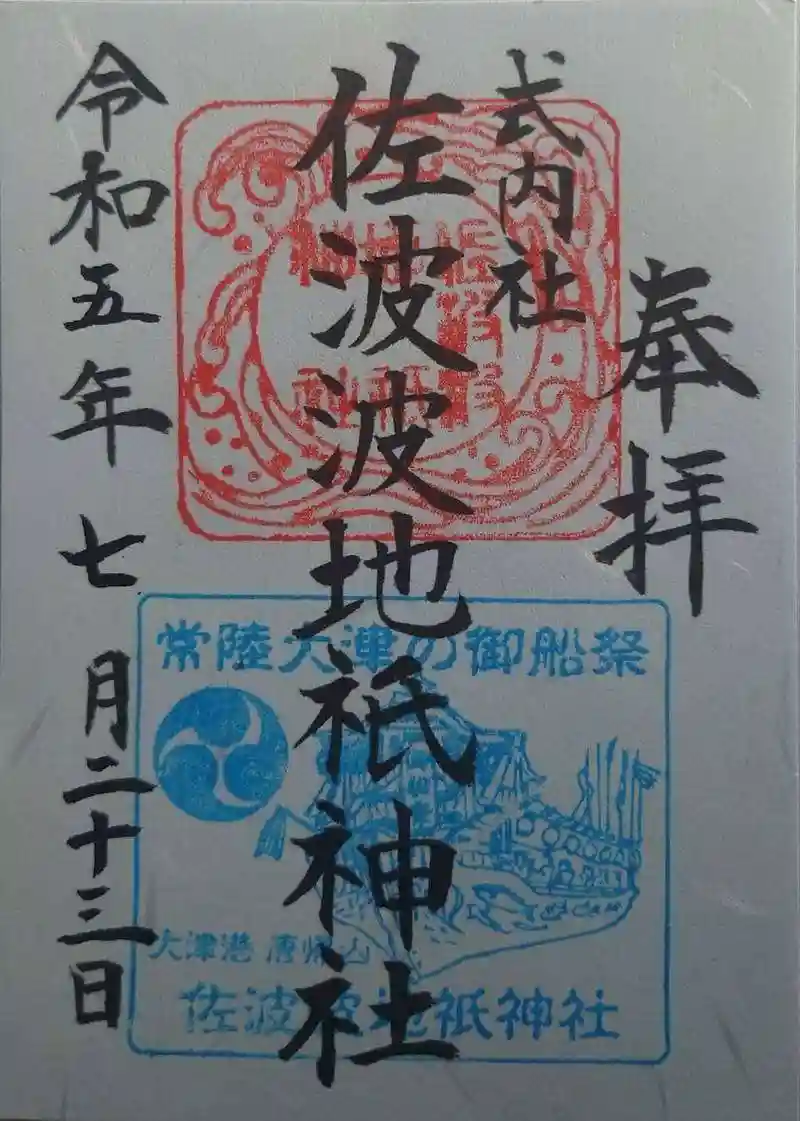 奉拝
式内社
佐波波地祇神社
令和五年七月二十三日
常陸大津の御船祭
大津港 唐帰山
佐波波地祇神社